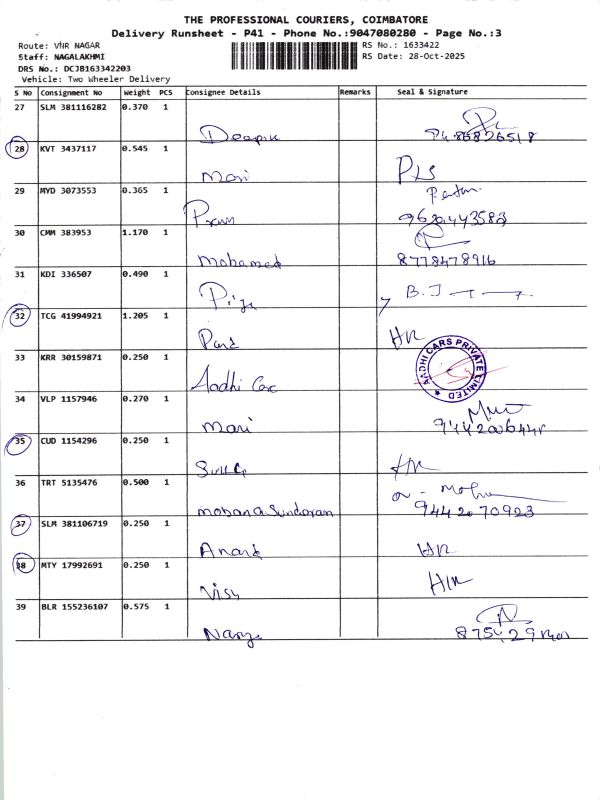 THE PROFESSIONAL COURIERS, COIMBATORE
Delivery Runsheet - P41 - Phone No.:9047080280 - Page No.:3
Route: VNR NAGAR RS No.: 1633422
Staff: NAGALAKHMI RS Date: 28-Oct-2025
DRS No.: DCJB163342203
Vehicle: Two Wheeler Delivery
S No Consignment No Weight PCS Consignee Details Remarks Seal & Signature
27 SLM 381116282 0.370 1
Deepik
28 KVT 3437117 0.545 1
Mari PLS
29 MYD 3073553 0.365 1
30 CMM 383953 1.170 1
Mohamed 8778478916
31 KDI 336507 0.490 1
Priya B.J
32 TCG 41994921 1.205 1
HR
33 KRR 30159871 0.250 1
Aadhi Care AADHI CARS PRIVATE LIMITED
34 VLP 1157946 0.270 1
Mari
35 CUD 1154296 0.250 1
HR
36 TRT 5135476 0.500 1
Mohana Sundaram 9442070923
37 SLM 381106719 0.250 1
Anand HR
38 MTY 17992691 0.250 1
Visu HR
39 BLR 155236107 0.575 1